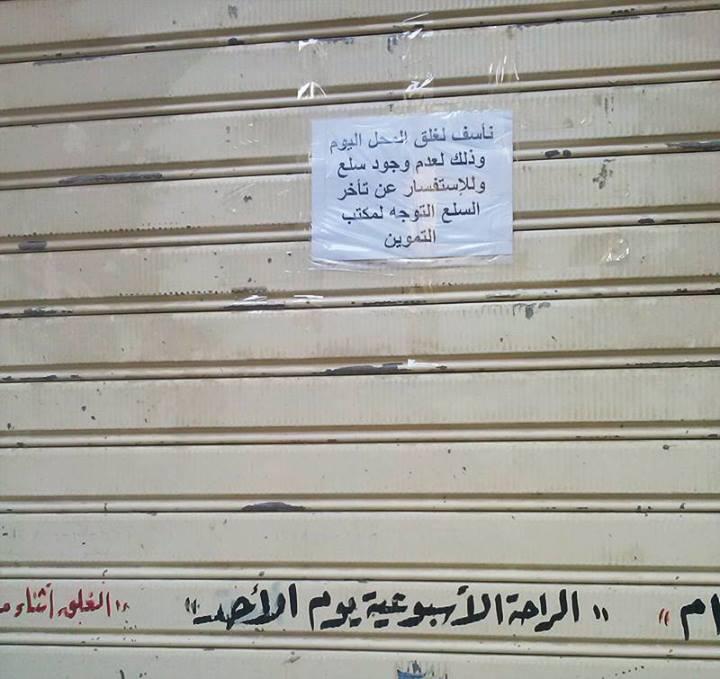 نأسف لغلق المحل اليوم
وذلك لعدم وجود سلع
وللإستفسار عن تأخر
السلع التوجه لمكتب
التموين
"الراحة الأسبوعية يوم الأحد" "الغلق أثناء